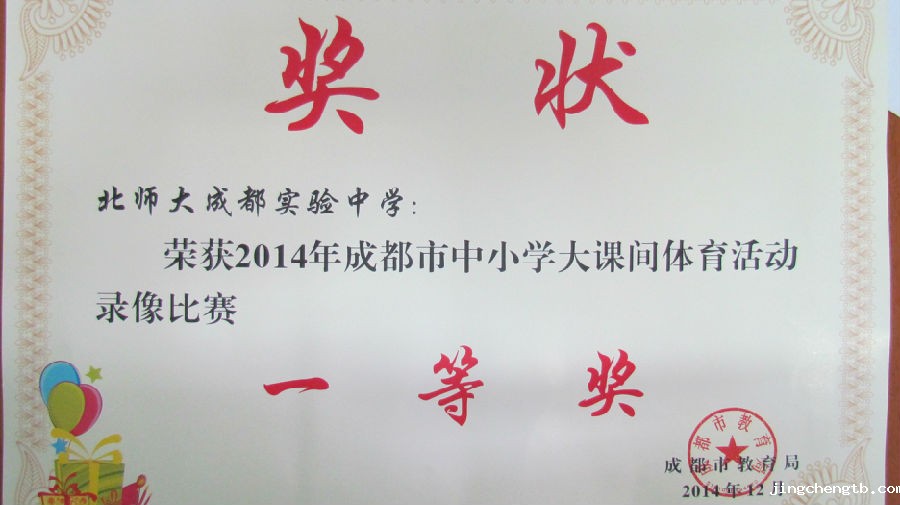 奖状
北师大成都实验中学:
荣获2014年成都市中小学大课间体育活动
录像比赛
一等奖
成都市教育局
2014年12月
jingchengtb.com